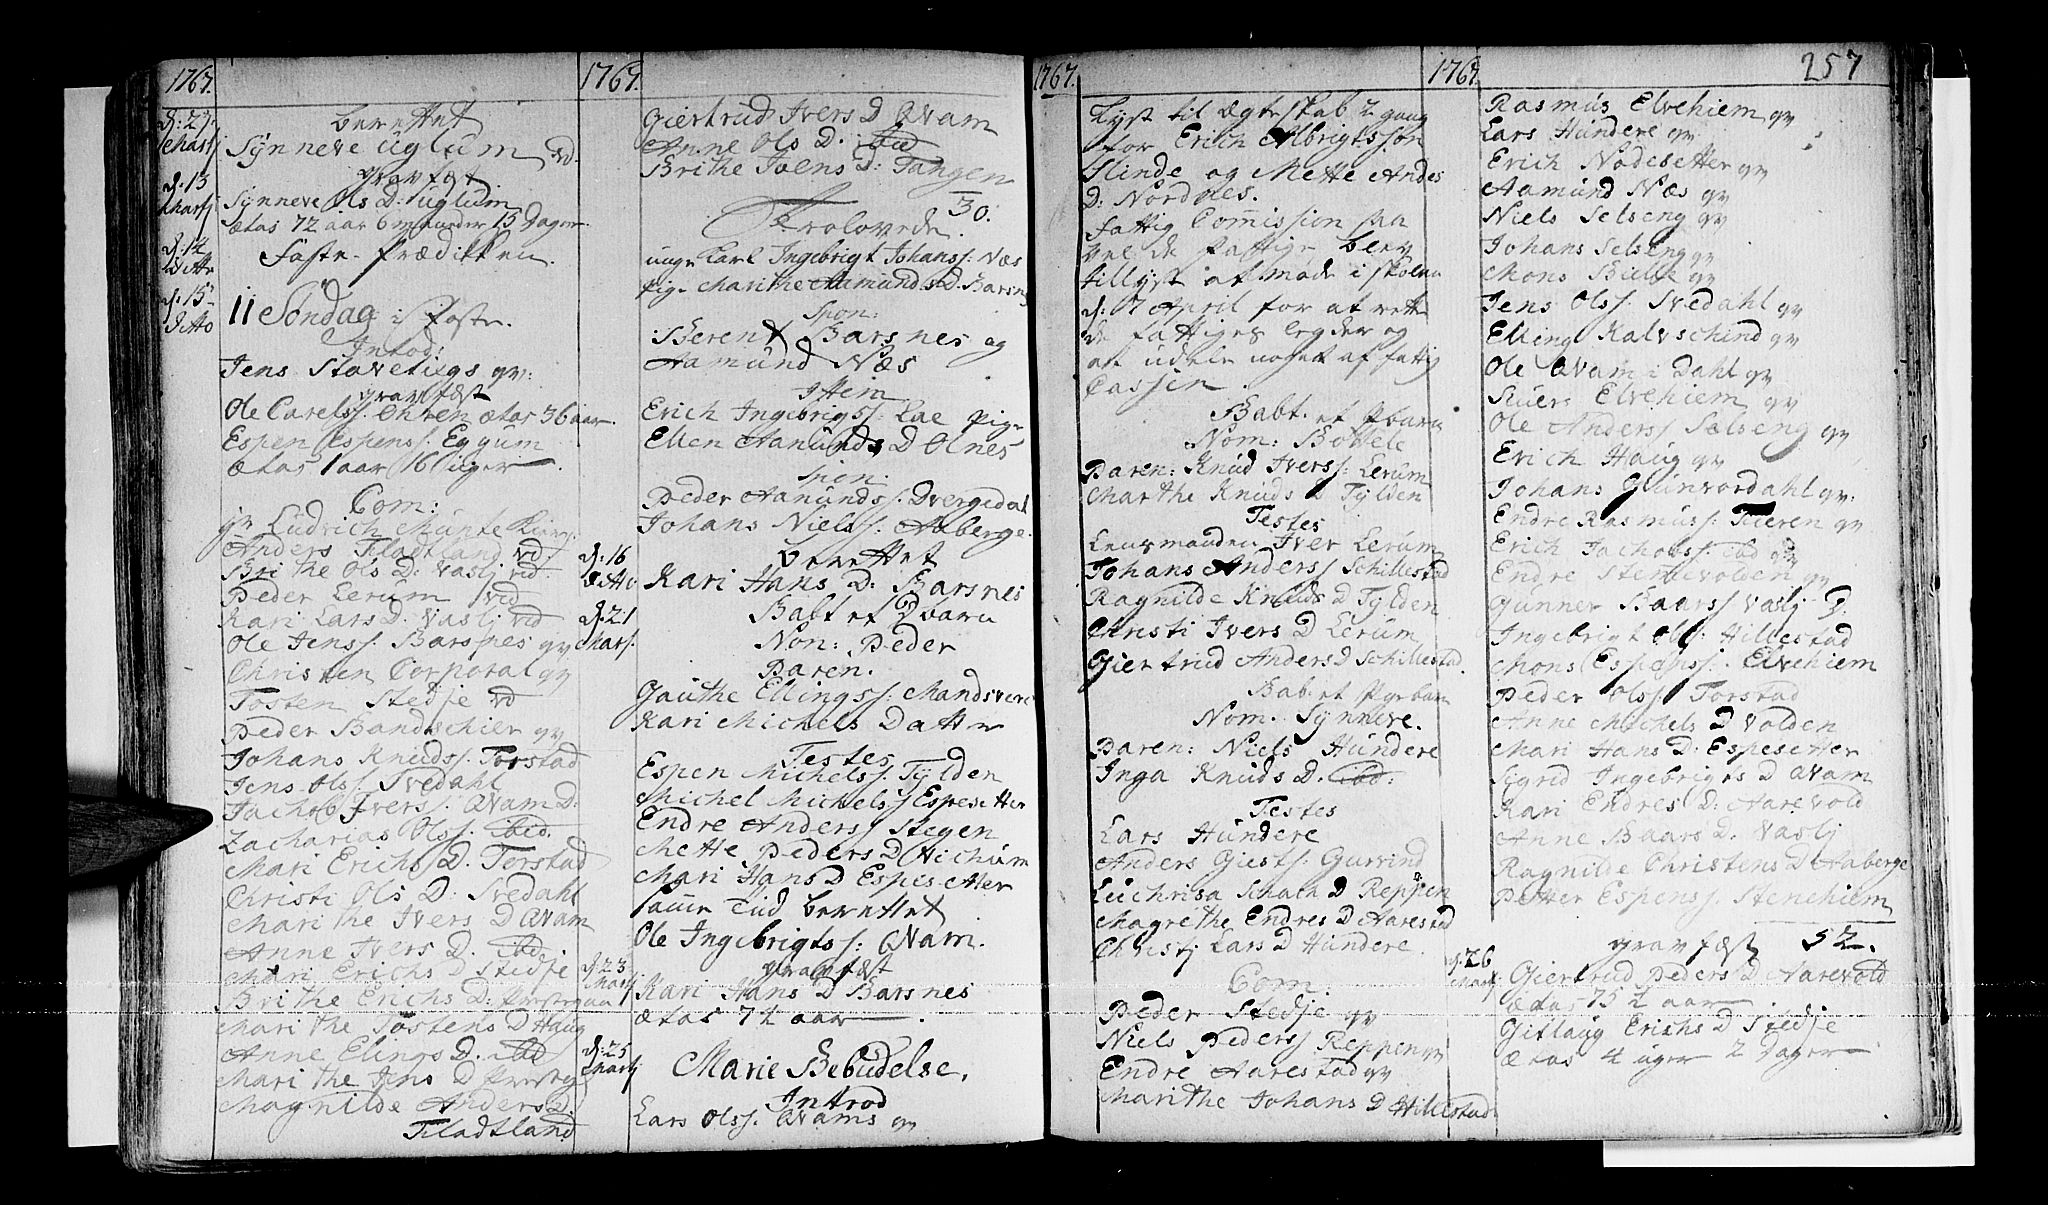 1767.
d: 27
Martj
berettet
Synneve Uglum vd.
d: 13
Martj
gravfæst
Synneve Ols D: Uglum
ætas 72 aar 6 maaneder 13 Dager
d: 14
Ditto
Faste-Prædikken.
d. 15
Ditto
II Söndag i Faste.
Introd:
Jens Stavetiigs qv:
gravfæst
Ole Carelss. Ohren ætas 36 aar.
Espen Espens s. Eggum
ætas 1 aar 16 uger
Com:
Ludrich Munte
Anders Fladtland vd.
Brithe Ols D: Vaslj vd.
Peder Lerum vd
Kari Lars D. Vaslj vd
Ole Jenss: Barsnes qv
Christen Corporal qv
Tosten Stedje vd
Peder Bandschier qv
Johans Knudss. Torstad
Jens Olss. Svedahl
Jachob Ivers s: Qvam D:
Zacharias Olss. ibid.
Mari Erichs D. Torstad
Christi Ols D: Svedahl
Marithe Ivers D Qvam
Anne Ivers D. ibid
Mari Erichs D Stedje
Brithe Erichs D:
Marithe Tostens D Haug
Anne Elings D. ibid
Marithe Jens D
Magnilde Anders D.
Fladtland
1767.
Giertrud Ivers D Qvam
Anne Ols D. ibid
Brithe Joens D: Tangen
30.
Trolovede.
unge Karl Ingebrigt Johans s: Næs
Pige Marithe Aamunds D. Barsnes
Spon:
Berent Barsnes og
Aamund Næs
Item
Erich Ingebrigs s: Lae Pige
Ellen Aamunds D Olnes
Spon:
Peder Aamunds s. Dvergedal
Johans Niels s: Aaberge.
d: 16
Ditto
berettet
Kari Hans D: Barsnes
d. 21
Mars.
Babt et Dbarn
Nom: Peder
Paren.
Gauthe Ellings s: Mandsverk
Kari Michels Datter
Testes
Espen Michels s. Tylden
Michel Michels s Espesetter
Endre Anders s Stegen
Mette Peders D Hichum
Mari Hans D Espesetter
samme Tiid berettet
Ole Ingebrigts s: Qvam.
d. 23
Martj
gravfæst
Kari Hans D Barsnes
ætas 74 aar.
d: 25
Martj
Marie Bebudelse.
Introd
Lars Olss. Qvams qv
1767.
Lyst til Ægteskab 2 gang
for Erich Albrigtssøn
Slinde og Mette Andes
D: Nordnes.
Fattig Commission saa
vel de fattige blev
tillyst at møde i skolen
d: 7 April for at rette
de fattiges legder og
at udele noget af fattig
Cassen.
Babt. et Pbarn
Nom: Bottele
Paren: Knud Ivers s: Lerum
Marthe Knuds D Tylden
Testes
Lensmanden Iver Lerum
Johans Anders s Schillestad
Ragnilde Knuds D Tylden
Christi Ivers D Lerum
Giertrud Anders D Schillestad.
Bab. et Pigebarn
Nom. Synneve.
Paren: Niels Hundere
Inga Knuds D. ibid:
Testes
Lars Hundere
Anders Giests: Gurvind
Luchrisa D Reppen
Magrethe Endres D Aarestad
Christj Lars D Hundere
Com:
Peder Stedje qv
Niels Peders s Reppen qv
Endre Aarestad qv
Marithe Johans D Hillestad
1767.
257
Rasmus Elvehiem qv
Lars Hundere qv
Erich Nodesetter qv
Aamund Næs qv
Niels Selseng qv
Johans Selseng qv
Mons Bulle qv
Jens Olss. Svedahl qv
Elling Kalvschind qv
Ole Qvam i Dahl qv
Siuer Elvehiem qv
Ole Anders s Selseng qv
Erich Haug qv
Johans Gunvordahl qv.
Endre Rasmus s: Fieren qv
Erich Jachobs s: ibid qv
Endre Stenevolden qv
Gunner Baars s Vaslj D:
Ingebrigt Olss: Hillestad
Mons Espens s. Elvehiem
Peder Olss Torstad
Anne Michels D Volden
Mari Hans D: Espesetter
Sigrid Ingebrigts D Qvam
Kari Endres D: Aarevold
Anne Baars D: Vaslj
Ragnilde Christens D Aaberge
Petter Espens s Stenehiem
52.
d. 26
Martj
gravfæst
Giertrud Peders D Aarevold
ætas 75 1/2 aar
Gitlaug Erichs D Stedje
ætas 4 uger 2 Dager